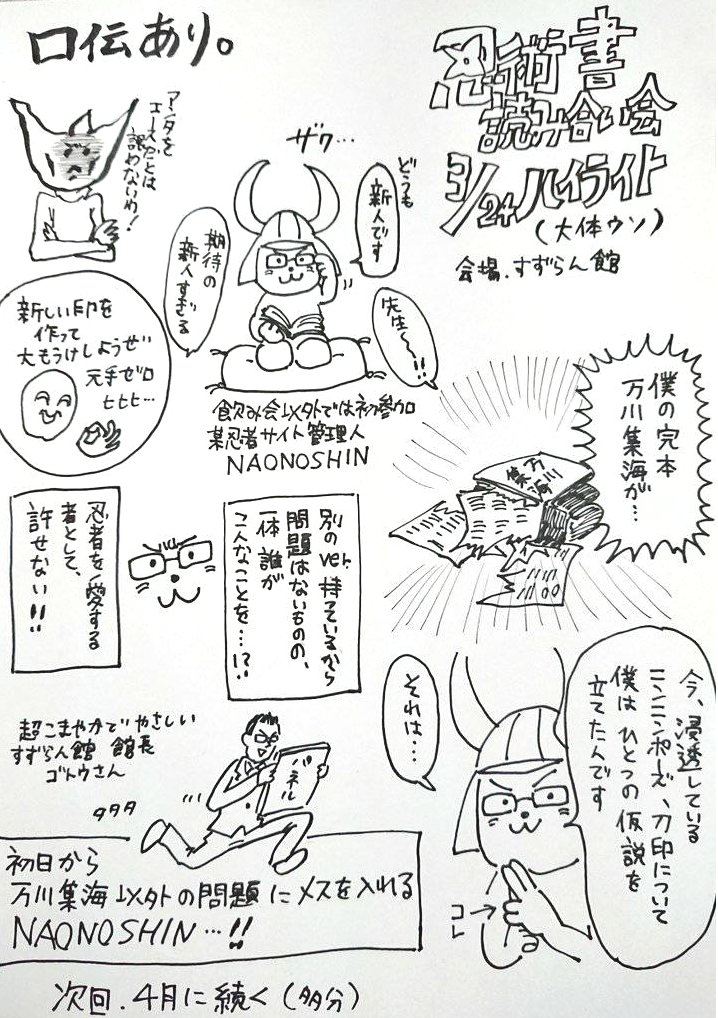 口伝あり。
忍術書
読み合い会
3/24ハイライト
(大体ウソ)
会場.すずらん館
アンタを
エースだとは
認めないわ!
ザワ…
どうも
新人です
期待の
新人すぎる
飲み会以外では初参加
某忍者サイト管理人
NAONOSHIN
新しい印を
作って
大もうけしようぜ
元手ゼロ
ヒヒヒ…
先生〜!!
僕の完本
万川集海が…
万川
集海
別のver.持っているから
問題はないものの、
一体誰が
こんなことを…!?
忍者を愛する
者として、
許せない!!
今、浸透している
ニンニンポーズ、刀印について
僕はひとつの仮説を
立てたんです
それは…
コレ
超こまやかでやさしい
すずらん館 館長
ゴトウさん
パネル
タタタ
初日から
万川集海以外の問題にメスを入れる
NAONOSHIN…!!
次回.4月に続く(多分)